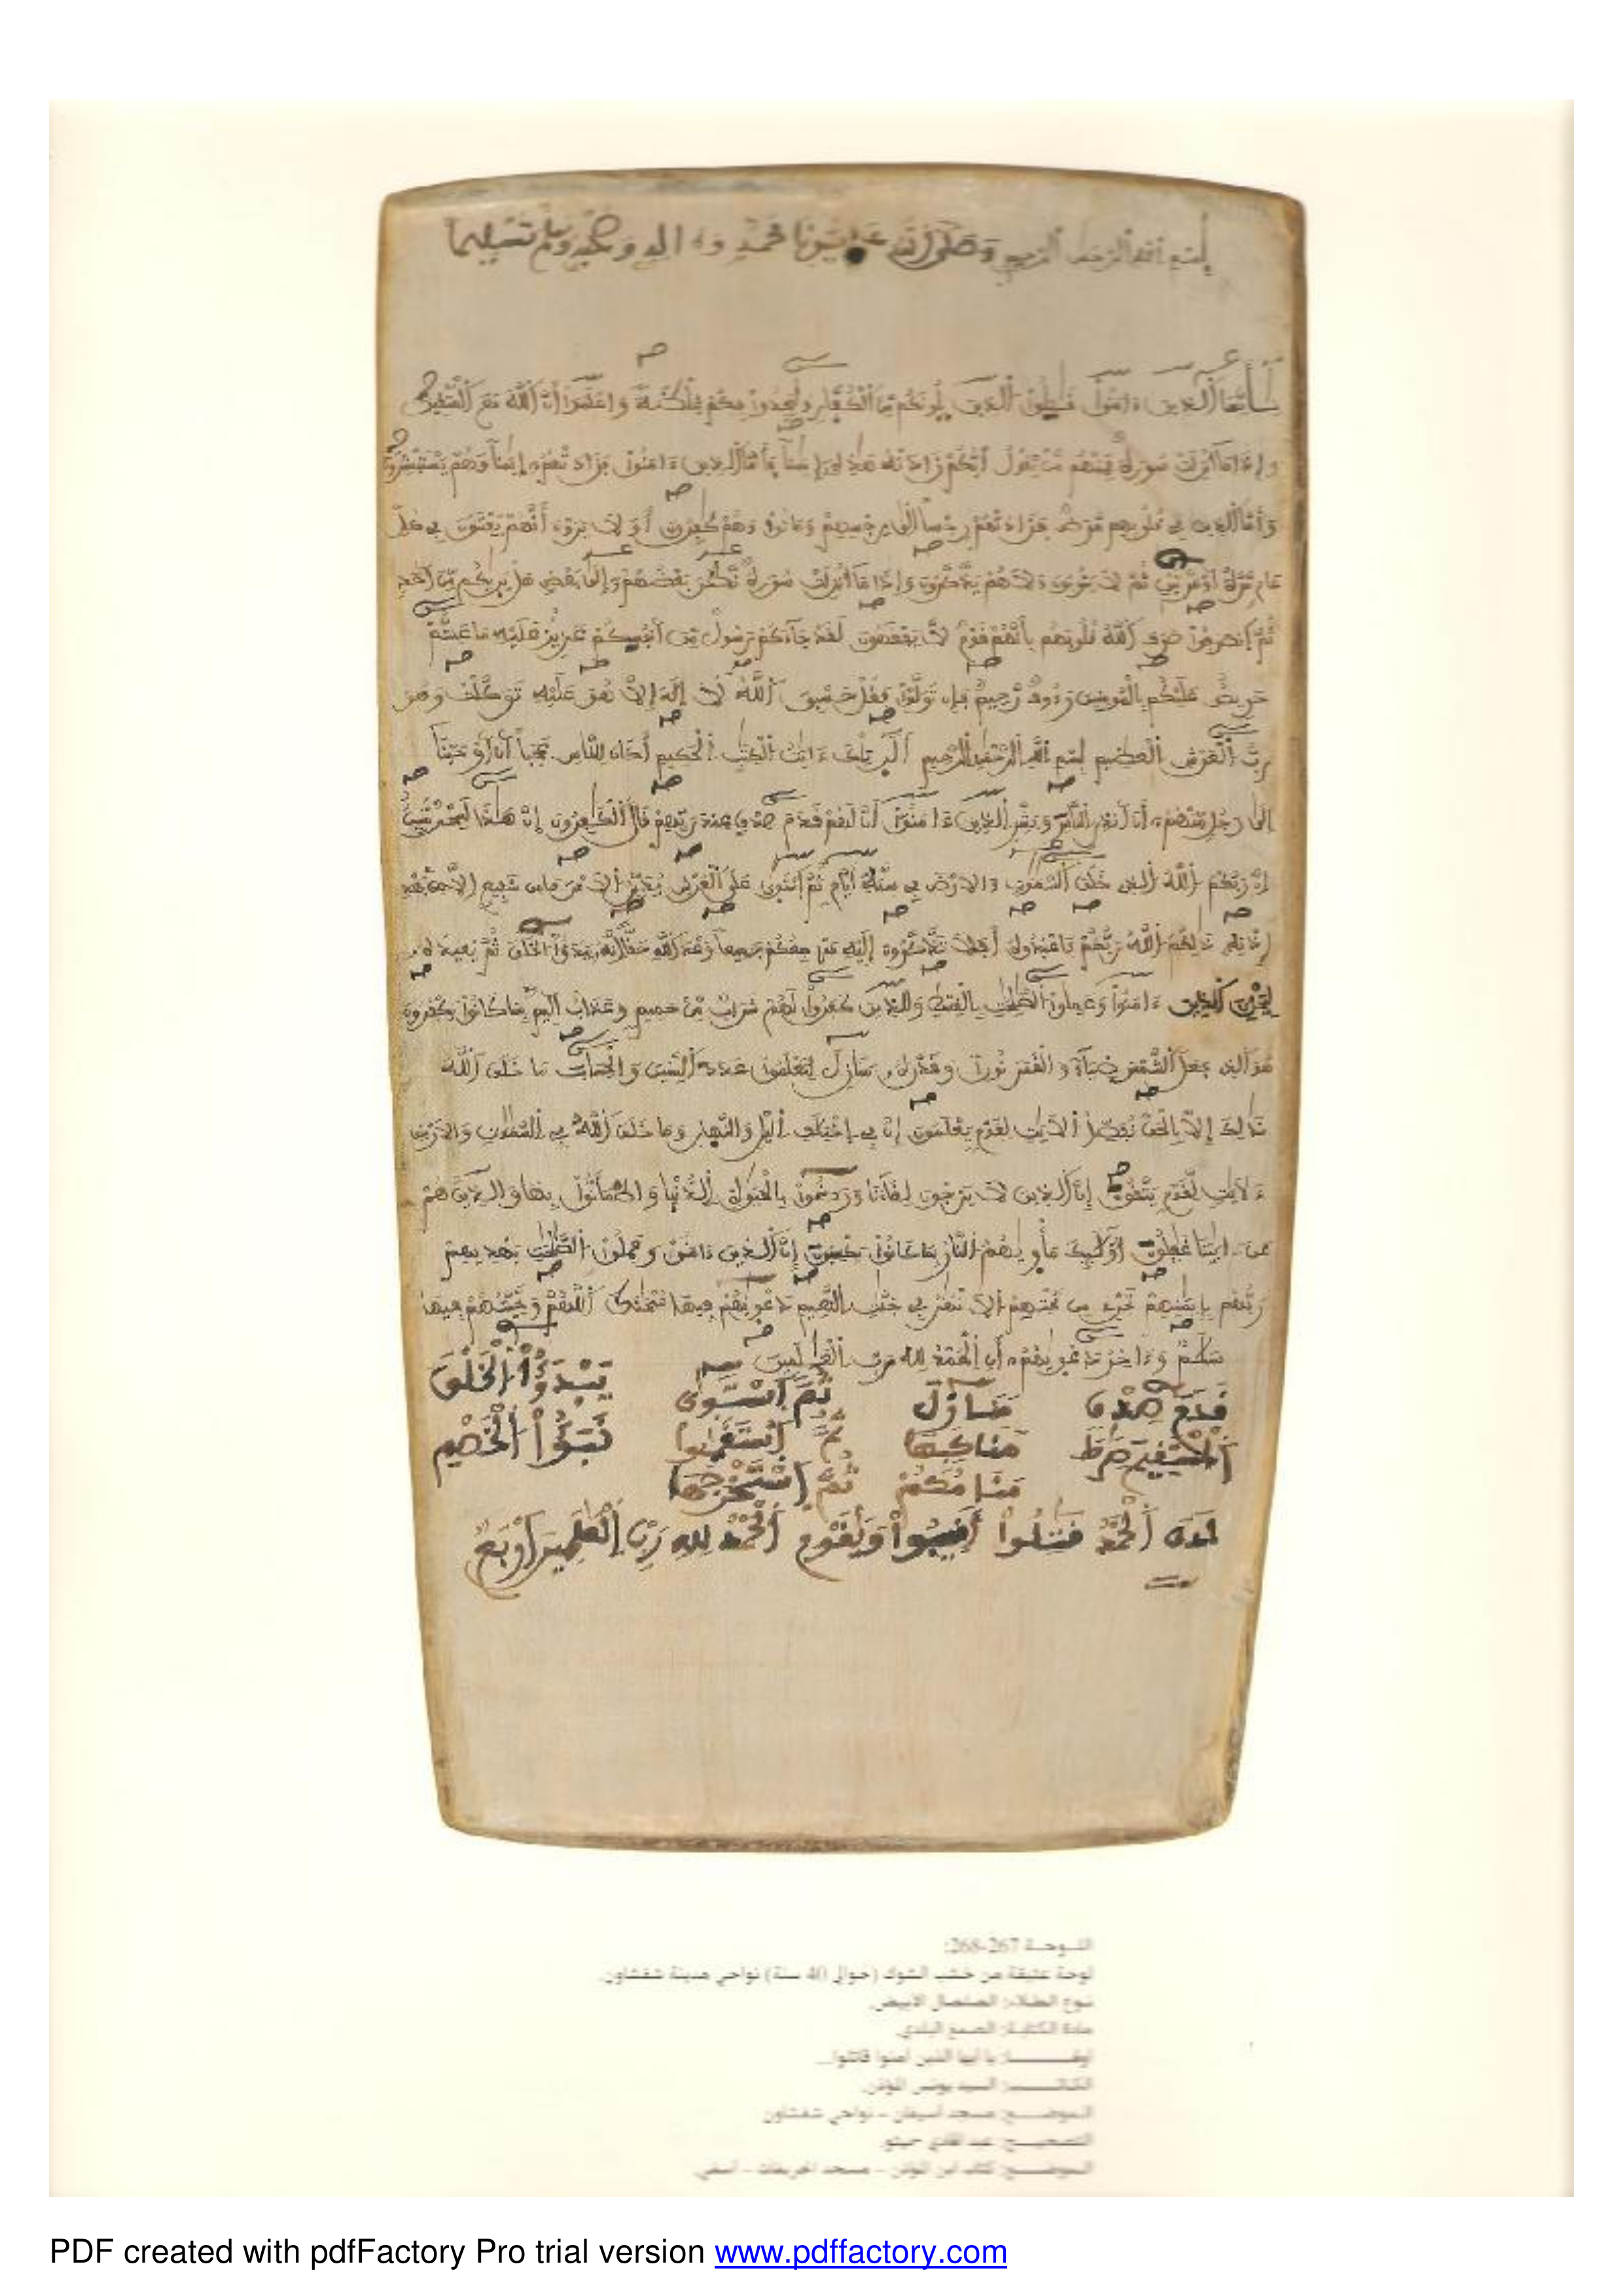 بسم الله الرحمن الرحيم وصلى الله على سيدنا محمد وءاله وصحبه وسلم تسليما
يأيها الذين ءامنوا قتلوا الذين يلونكم من الكفار وليجدوا فيكم غلظة واعلموا أن الله مع المتقين
وإذا ما أنزلت سورة فمنهم من يقول أيكم زادته هذه إيمنا فأما الذين ءامنوا فزادتهم إيمنا وهم يستبشرون
وأما الذين في قلوبهم مرض فزادتهم رجسا إلى رجسهم وماتوا وهم كفرون أولا يرون أنهم يفتنون في كل
عام مرة أو مرتين ثم لا يتوبون ولا هم يذكرون وإذا ما أنزلت سورة نظر بعضهم إلى بعض هل يريكم من أحد
ثم انصرفوا صرف الله قلوبهم بأنهم قوم لا يفقهون لقد جاءكم رسول من أنفسكم عزيز عليه ما عنتم
حريص عليكم بالمومنين رءوف رحيم فإن تولوا فقل حسبي الله لا إله إلا هو عليه توكلت وهو
رب العرش العظيم بسم الله الرحمن الرحيم الر تلك ءايت الكتب الحكيم أكان للناس عجبا أن أوحينا
إلى رجل منهم أن أنذر الناس وبشر الذين ءامنوا أن لهم قدم صدق عند ربهم قال الكفرون إن هذا لسحر مبين
إن ربكم الله الذي خلق السموت والارض في ستة أيام ثم استوى على العرش يدبر الامر ما من شفيع إلا من بعد
إذنه ذلكم الله ربكم فاعبدوه أفلا تذكرون إليه مرجعكم جميعا وعد الله حقا إنه يبدؤا الخلق ثم يعيده
ليجزي الذين ءامنوا وعملوا الصلحت بالقسط والذين كفروا لهم شراب من حميم وعذاب اليم بما كانوا يكفرون
هو الذي جعل الشمس ضياء والقمر نورا وقدره منازل لتعلموا عدد السنين والحساب ما خلق الله
ذلك إلا بالحق نفصل الايت لقوم يعلمون إن في اختلف اليل والنهار وما خلق الله في السموت والارض
ءلايت لقوم يتقون إن الذين لا يرجون لقاءنا ورضوا بالحيوة الدنيا واطمأنوا بها والذين هم
عن ءايتنا غفلون أولئك مأويهم النار بما كانوا يكسبون إن الذين ءامنوا وعملوا الصلحت يهديهم
ربهم بإيمنهم تجري من تحتهم الانهر في جنت النعيم دعويهم فيها سبحنك اللهم وتحيتهم فيها
سلم وءاخر دعويهم أن الحمد لله رب العلمين
قدم صدق منازل ثم استوى يبدؤا الخلق
المستقيم صرط مناكبها ثم نبؤا الخصم
منامكم ثم استخرجها
الحمد قتلوا الحمد لله رب العلمين
اللوحة 267-268:
لوحة عتيقة من خشب الشوك (حوالي 40 سنة) نواحي مدينة شفشاون.
نوع الطلاء: الصلصال الأبيض.
مادة الكتابة: الصمغ البلدي.
أولها: يا أيها الذين آمنوا قاتلوا...
الكاتب: السيد يونس المؤذن.
الموضع: مسجد أسيفان - نواحي شفشاون
التصحيح: عبد الهادي حميتو
PDF created with pdfFactory Pro trial version www.pdffactory.com